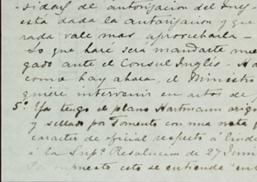 sidad de autorización del Juez
está dada la autorización y que
rada vale mas aprovecharla.
Lo que haré será mandarte
gado ante el Consul Inglés. Ha
como hay ahora, el Ministro
quiere intervenir en actos de
5º Ya tengo el plano Hartmann orig
y sellado por Fomento con una nota
caracter de oficial respecto á linde
á la Supª Resolucion de 27 Juni
momento esto se entiende